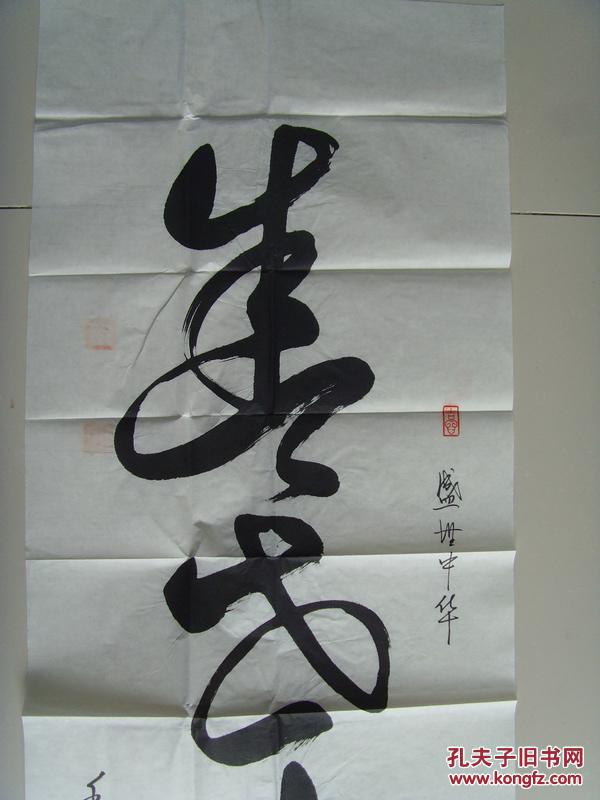 盛世
盛世中华
孔夫子旧书网
www.kongfz.com